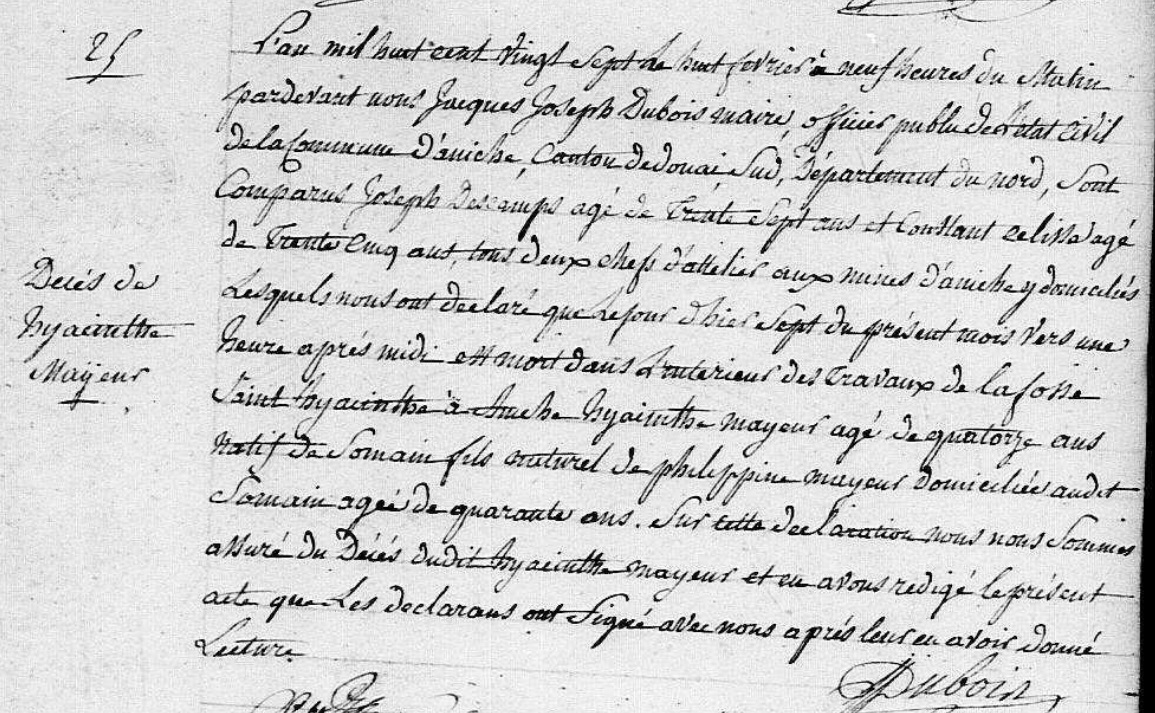 25
L'an mil huit cent vingt Sept le huit fevrier à neuf heures du Matin
pardevant nous Jacques Joseph Dubois maire, officier public de l'état Civil
de la Commune d'aniche, Canton de douai Sud, Département du nord, Sont
Comparus Joseph Descamps agé de Trente Sept ans et Constant Celisse agé
de Trente Cinq ans, tous deux chefs d'attelier aux mines d'aniche y domiciliés
Lesquels nous ont declaré que Le jour d'hier Sept du présent mois vers une
heure aprés midi est mort dans L'interieur des Travaux de la fosse
Saint hyacinthe à Aniche hyacinthe mayeur agé de quatorze ans
natif de Somain fils naturel de philippine mayeur domiciliée audit
Somain agée de quarante ans. Sur cette declaration nous nous Sommes
assuré du Décés dudit hyacinthe mayeur et en avons redigé le présent
acte que Les declarans ont Signé avec nous aprés leur en avoir donné
Lecture.
Decés de
hyacinthe
Mayeur
Dubois